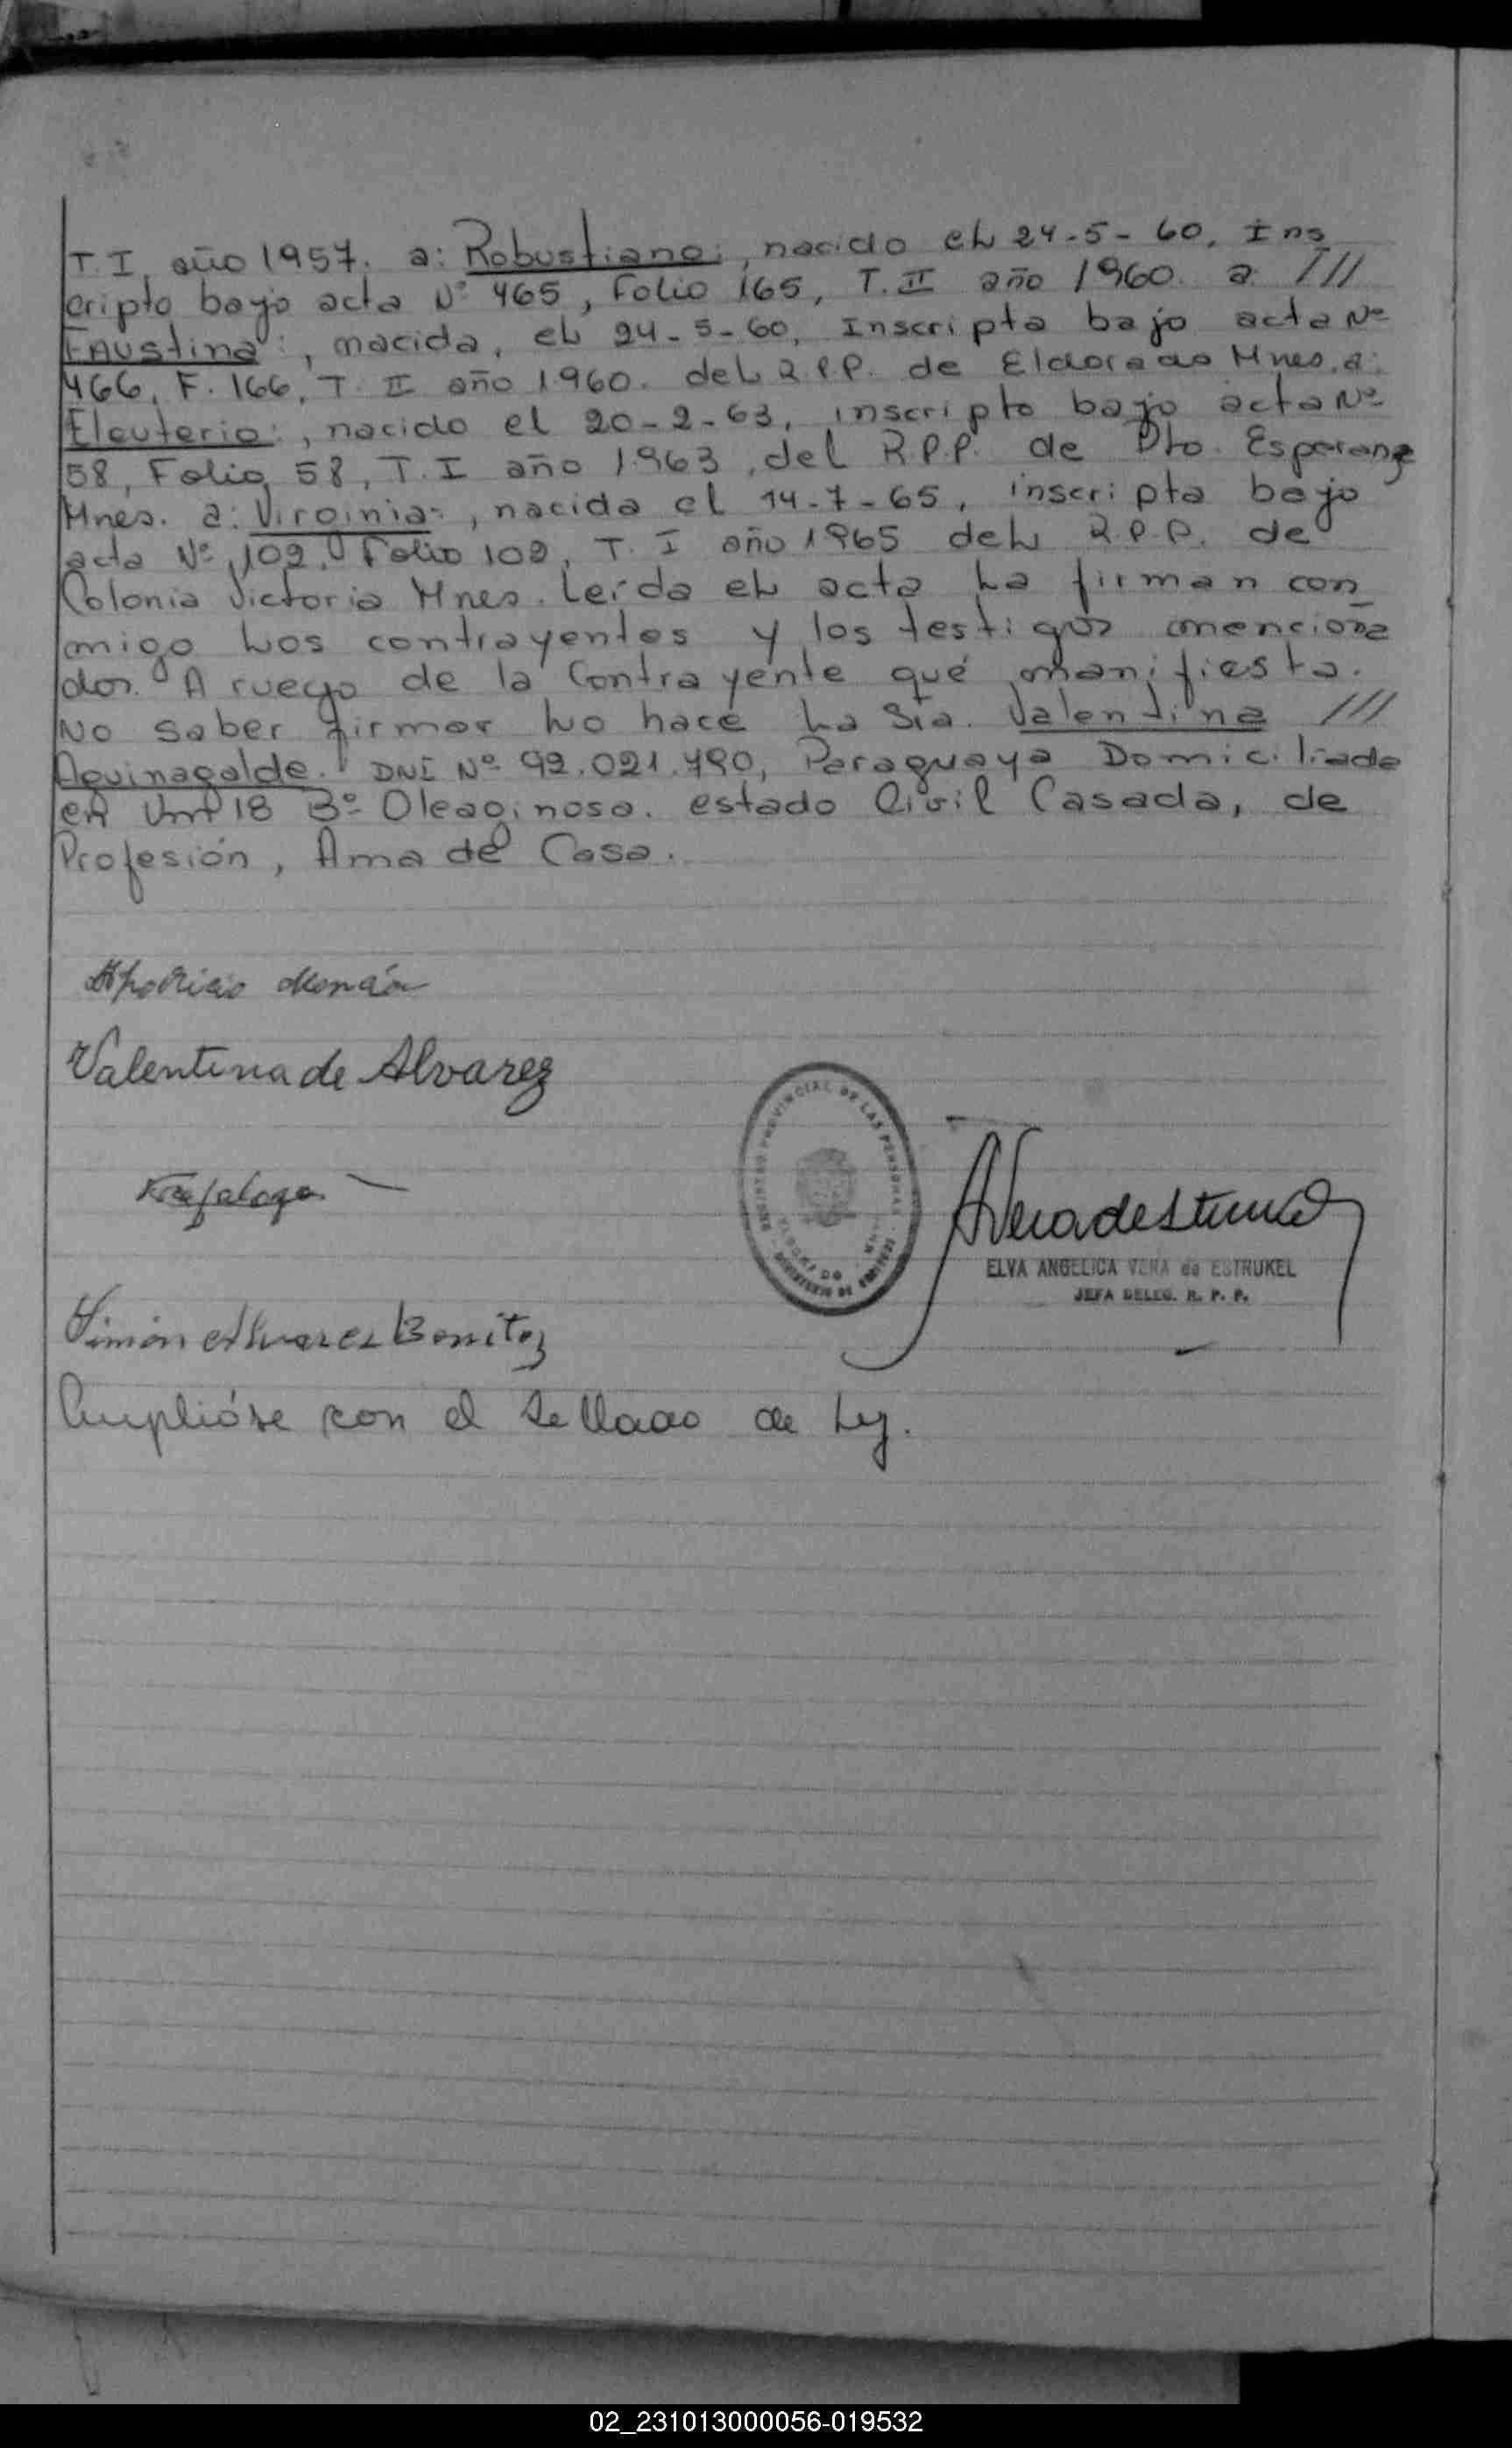 T. I, año 1957. a: Robustiano:, nacido el 24-5-60, Ins
cripto bajo acta Nº 465, Folio 165, T. II año 1960. a ///
FAustina:, nacida, el 24-5-60, Inscripta bajo acta Nº
466, F. 166, T. II año 1960. del R.P.P. de Eldorado Mnes. a:
Eleuterio:, nacido el 20-2-63, inscripto bajo acta Nº
58, Folio 58, T. I año 1963, del R.P.P. de Pto. Esperanza
Mnes. a: Virginia:, nacida el 14-7-65, inscripta bajo
acta Nº 109, Folio 109, T. I año 1965 del R.P.P. de
Colonia Victoria Mnes. Leída el acta La firman con
migo Los contrayentes y los testigos menciona
dos. A ruego de la Contrayente qué manifiesta.
No saber firmar Lo hace La Sra. Valentina ///
Aguinagalde. DNI Nº 92.021.490, Paraguaya Domiciliada
en Km 18 Bº Oleaginosa. estado Civil Casada, de
Profesión, Ama de Casa.
Aparicio
Valentina de Alvarez
REGISTRO PROVINCIAL DE LAS PERSONAS
ELDORADO
AVera de Estrukel
ELVA ANGELICA VERA de ESTRUKEL
JEFA DELEG. R. P. P.
Simón Alvarez Benitez
Cumplióse con el Sellado de Ley.
02_231013000056-019532